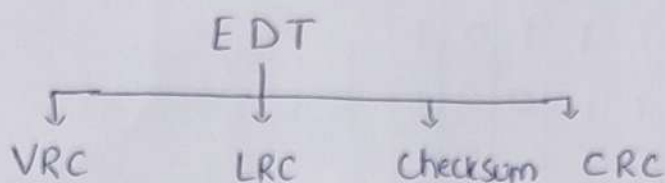 EDT
VRC LRC Checksum CRC